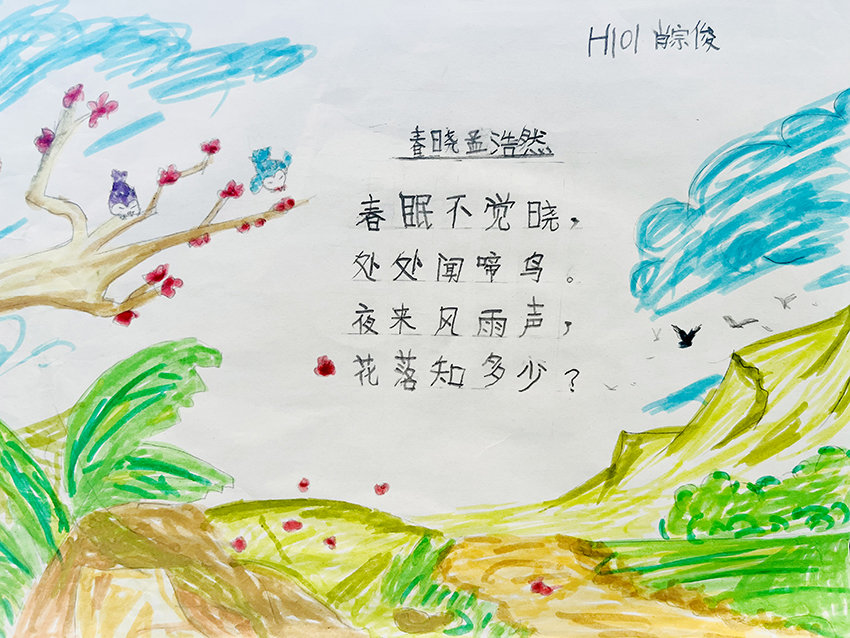 H101 肖宗俊
春晓孟浩然
春眠不觉晓，
处处闻啼鸟。
夜来风雨声，
花落知多少？